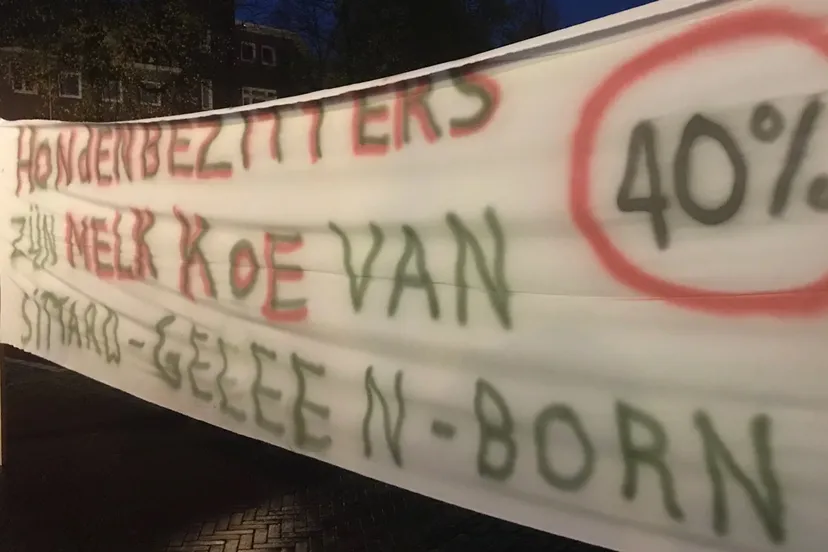 HONDENBEZITTERS
ZIJN MELK KOE VAN
SITTARD-GELEEN-BORN
40%